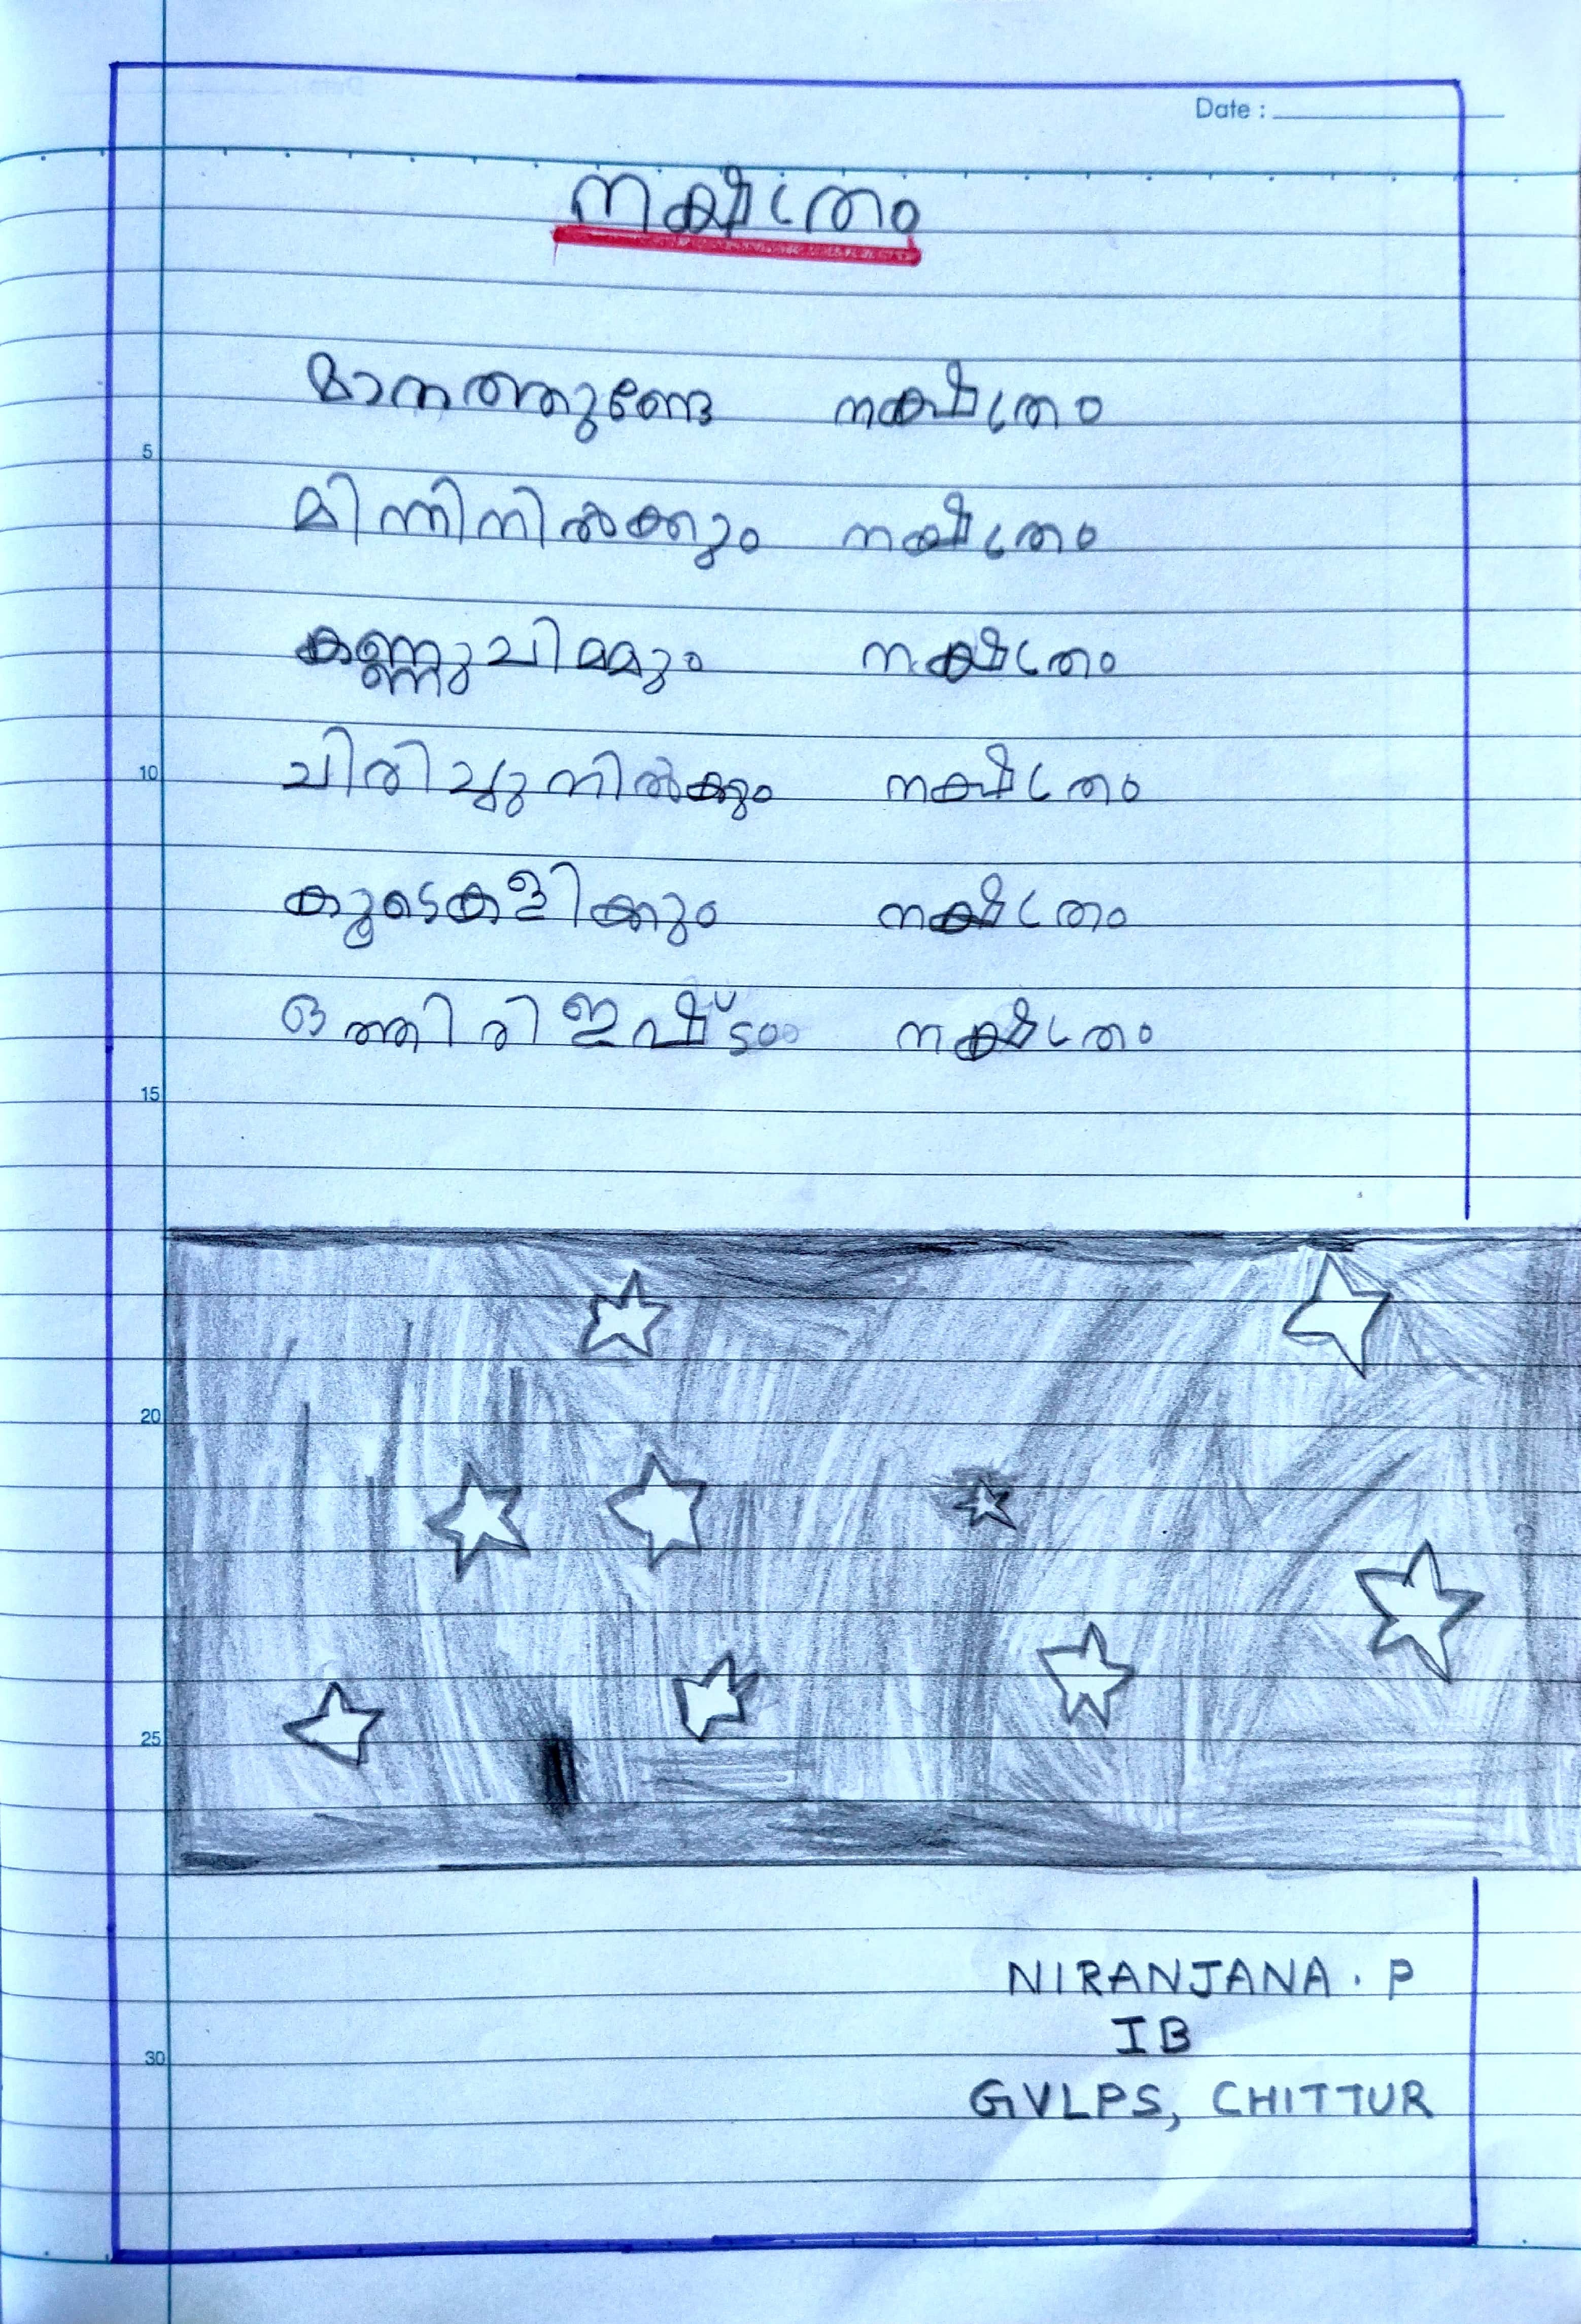 Date :
നക്ഷത്രം
മാനത്തുണ്ടേ നക്ഷത്രം
മിന്നിനിൽക്കും നക്ഷത്രം
കണ്ണുചിമ്മും നക്ഷത്രം
ചിരിച്ചുനിൽക്കും നക്ഷത്രം
കൂടെകളിക്കും നക്ഷത്രം
ഒത്തിരി ഇഷ്ടം നക്ഷത്രം
5
10
15
20
25
30
NIRANJANA . P
IB
GVLPS, CHITTUR